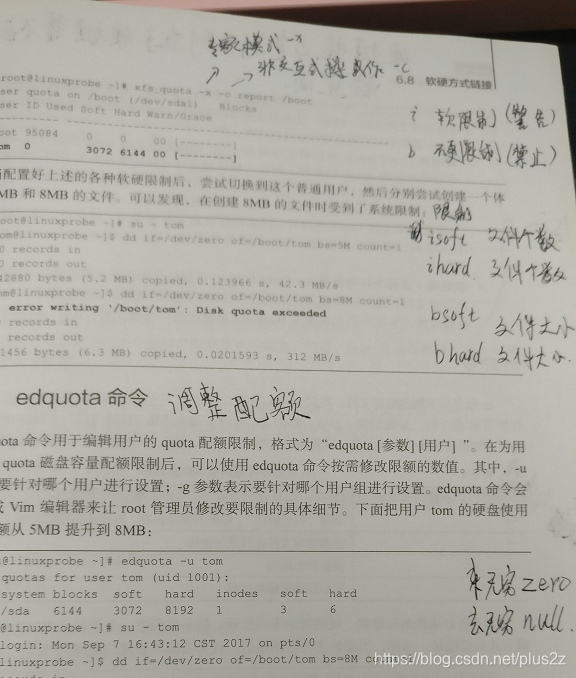 专家模式-x
→非交互式操作 -c
6.8 软硬方式链接
root@linuxprobe ~]# xfs_quota -x -c report /boot
ser quota on /boot (/dev/sda1) Blocks
ser ID Used Soft Hard Warn/Grace
oot 95084 0 0 00 [--------]
om 0 3072 6144 00 [--------]
i 软限制(警告)
b 硬限制(禁止)
配置好上述的各种软硬限制后,尝试切换到这个普通用户,然后分别尝试创建一个体
MB 和 8MB 的文件。可以发现,在创建 8MB 的文件时受到了系统限制:
限制
root@linuxprobe ~]# su - tom
om@linuxprobe ~]$ dd if=/dev/zero of=/boot/tom bs=5M count=1
0 records in
0 records out
42880 bytes (5.2 MB) copied, 0.123966 s, 42.3 MB/s
om@linuxprobe ~]$ dd if=/dev/zero of=/boot/tom bs=8M count=1
error writing '/boot/tom': Disk quota exceeded
records in
records out
1456 bytes (6.3 MB) copied, 0.0201593 s, 312 MB/s
isoft 文件个数
ihard 文件个数
bsoft 文件大小
bhard 文件大小
edquota 命令 调整配额
ota 命令用于编辑用户的 quota 配额限制,格式为“edquota [参数] [用户] ”。在为用
quota 磁盘容量配额限制后,可以使用 edquota 命令按需修改限额的数值。其中,-u
要针对哪个用户进行设置;-g 参数表示要针对哪个用户组进行设置。edquota 命令会
Vim 编辑器来让 root 管理员修改要限制的具体细节。下面把用户 tom 的硬盘使用
额从 5MB 提升到 8MB:
@linuxprobe ~]# edquota -u tom
quotas for user tom (uid 1001):
system blocks soft hard inodes soft hard
/sda 6144 3072 8192 1 3 6
@linuxprobe ~]# su - tom
login: Mon Sep 7 16:43:12 CST 2017 on pts/0
linuxprobe ~]$ dd if=/dev/zero of=/boot/tom bs=8M
来无穷 zero
去无穷 null.
https://blog.csdn.net/plus2z